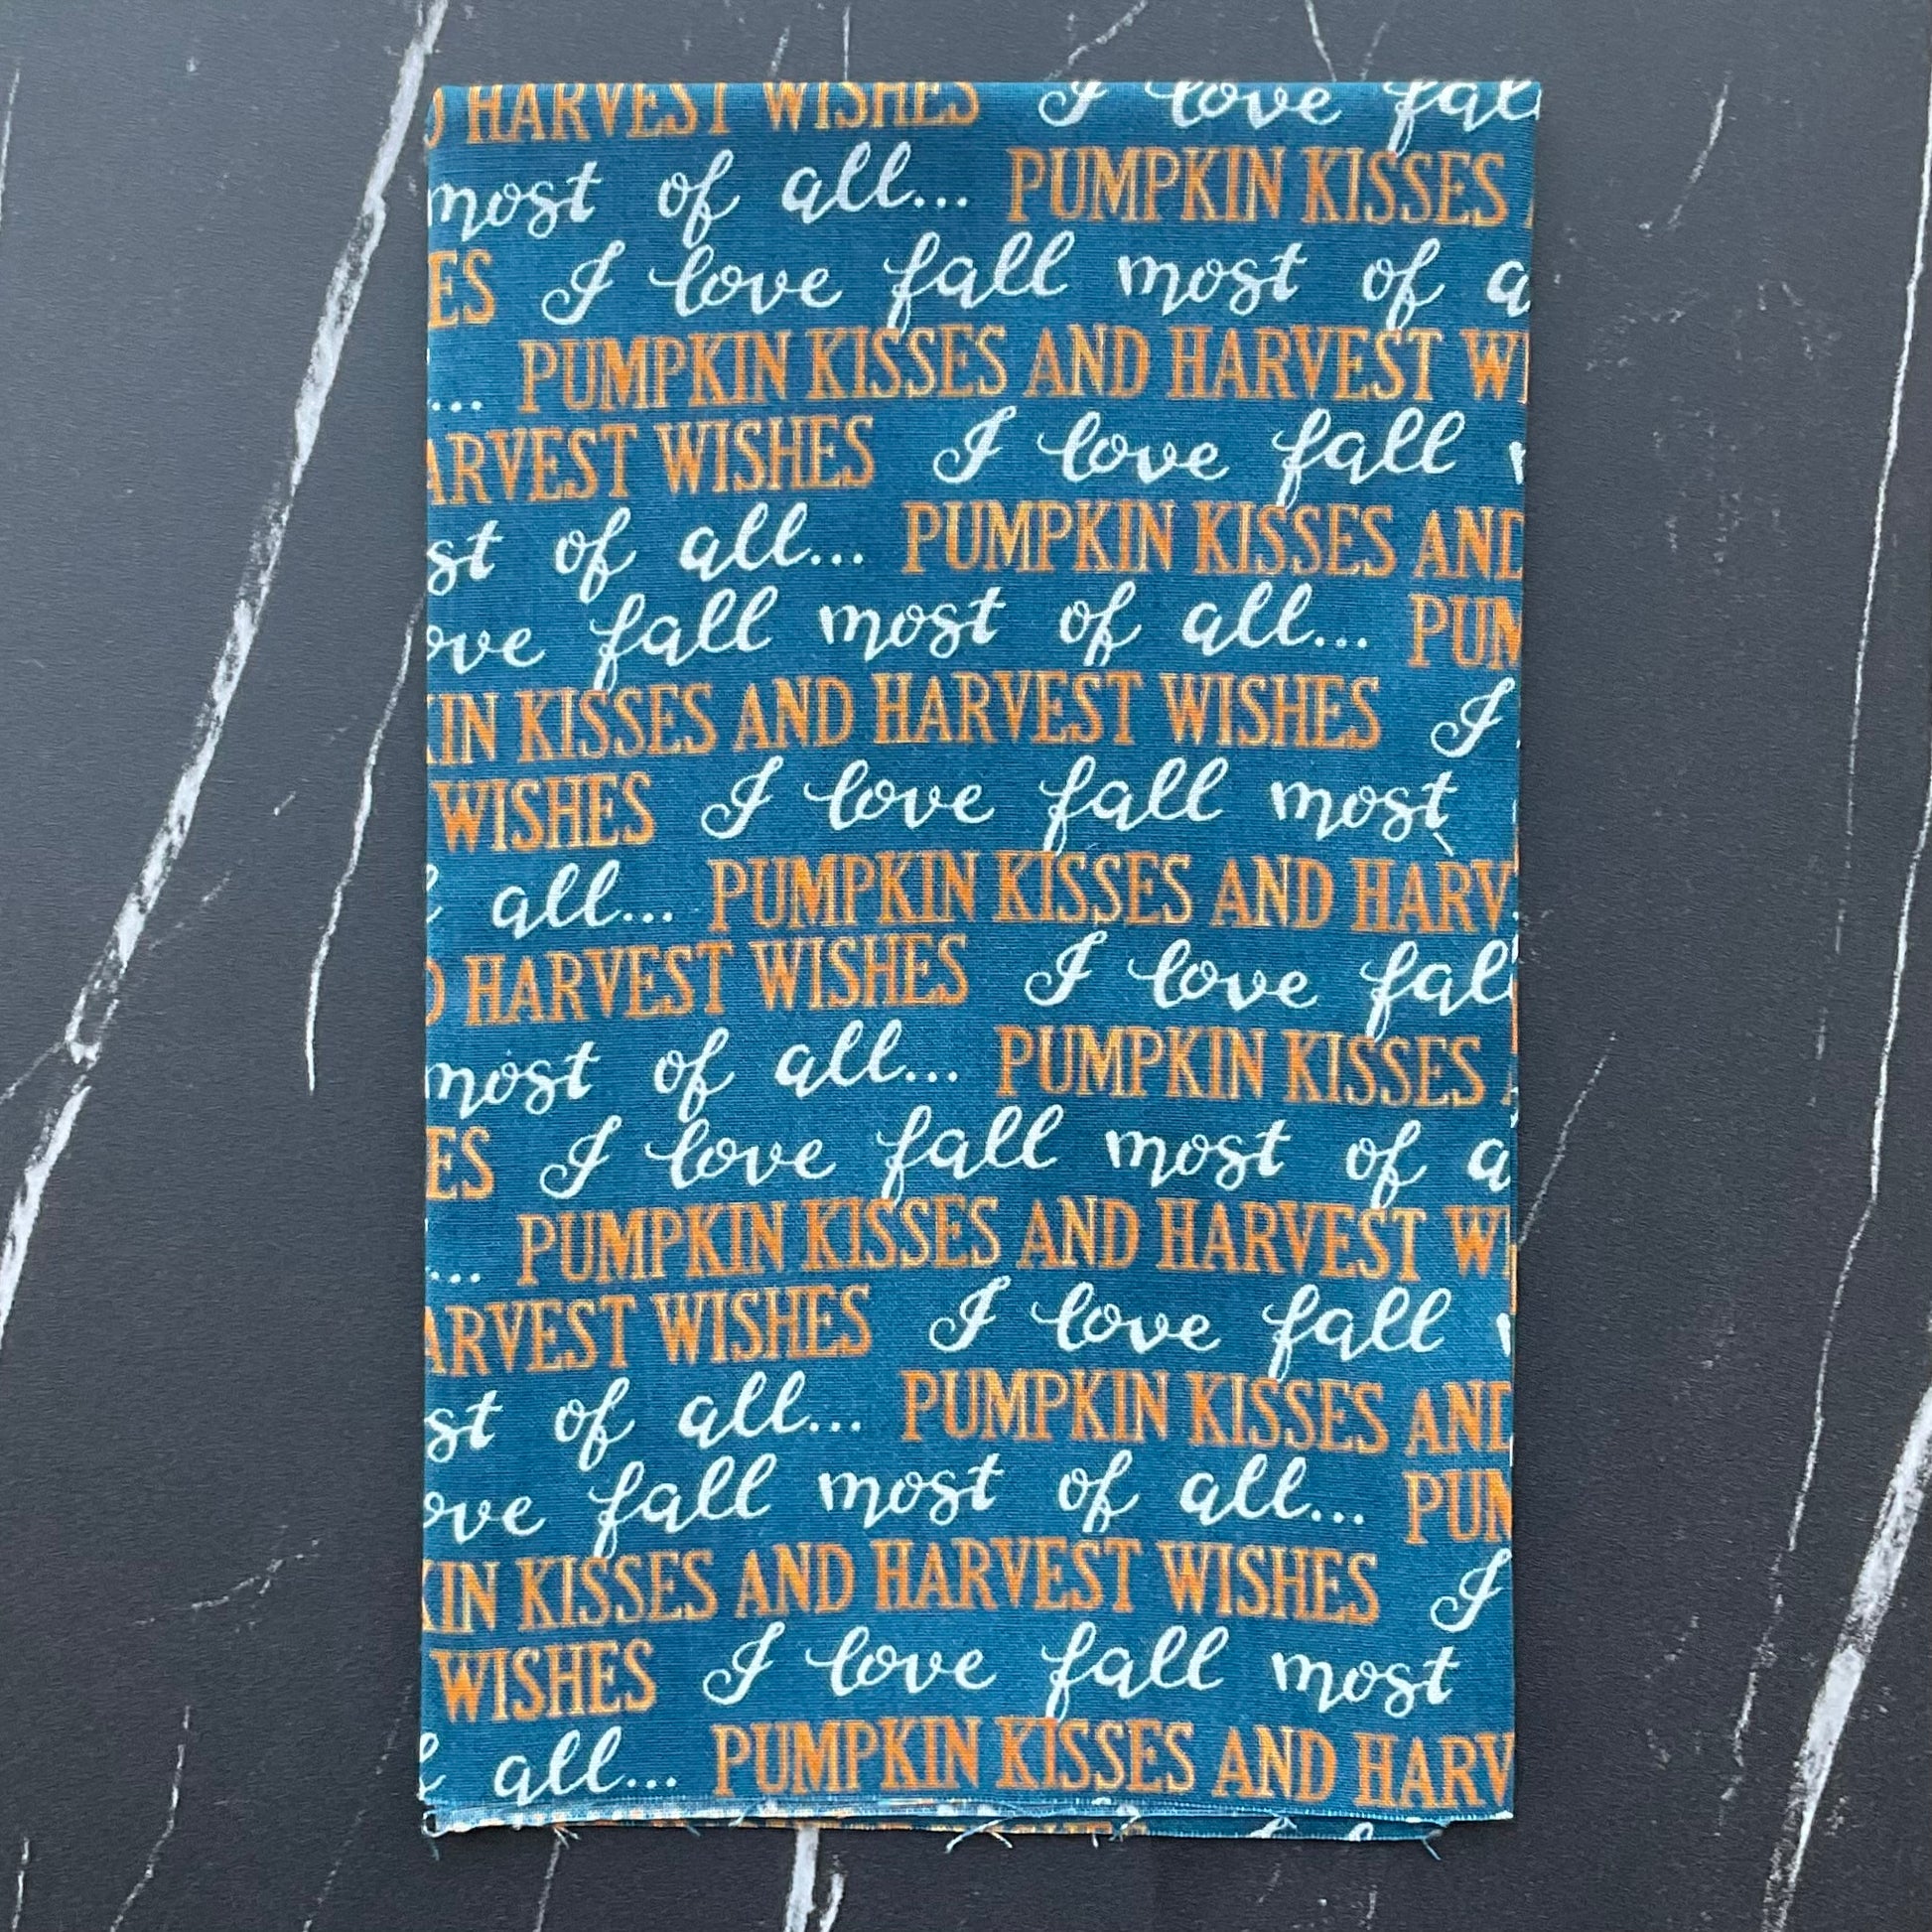 HARVEST WISHES I love fall
most of all... PUMPKIN KISSES
ES I love fall most of a
... PUMPKIN KISSES AND HARVEST WI
ARVEST WISHES I love fall
st of all... PUMPKIN KISSES AND
ove fall most of all... PUM
IN KISSES AND HARVEST WISHES I
WISHES I love fall most
all... PUMPKIN KISSES AND HARV
D HARVEST WISHES I love fall
most of all... PUMPKIN KISSES
ES I love fall most of a
... PUMPKIN KISSES AND HARVEST WI
ARVEST WISHES I love fall
st of all... PUMPKIN KISSES AND
ove fall most of all... PUM
KIN KISSES AND HARVEST WISHES I
WISHES I love fall most
all... PUMPKIN KISSES AND HARV